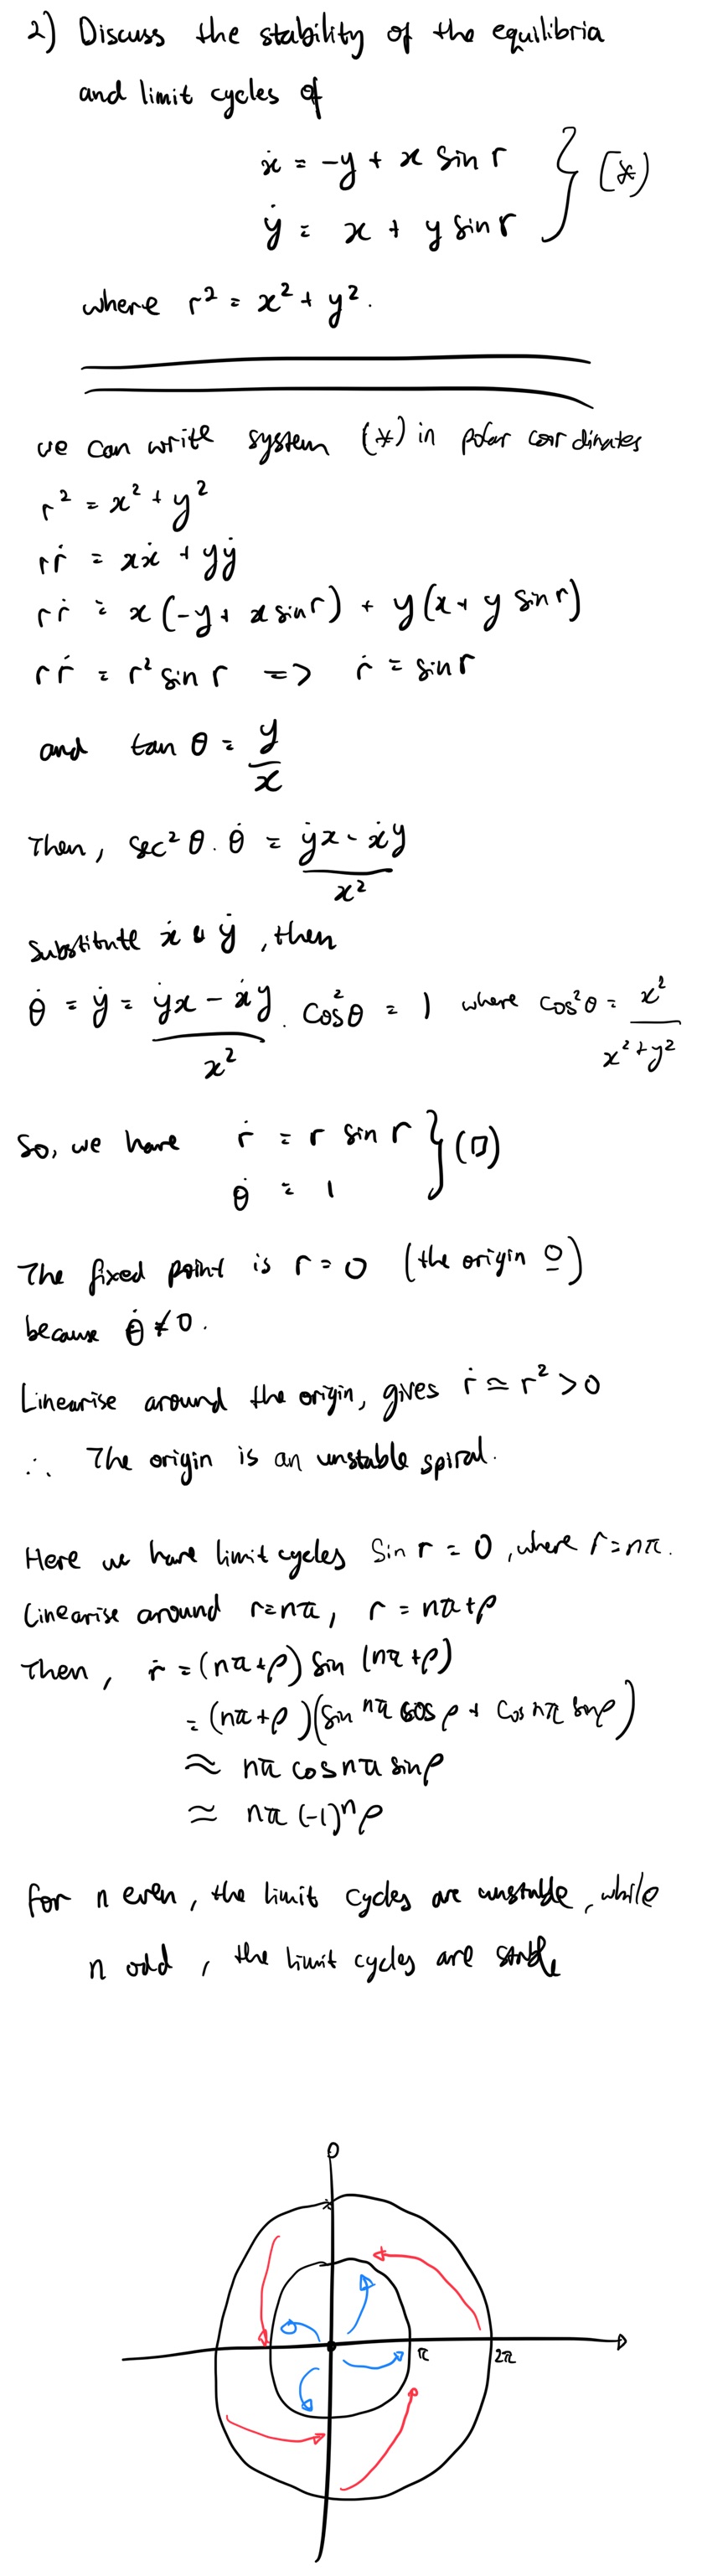 2) Discuss the stability of the equilibria
and limit cycles of
ẋ = -y + x sin r } (*)
ẏ = x + y sin r
where r² = x² + y².
we can write system (*) in polar coordinates
r² = x² + y²
rṙ = xẋ + yẏ
rṙ = x(-y + x sin r) + y(x + y sin r)
rṙ = r² sin r => ṙ = sin r
and tan θ = y/x
Then, sec² θ . θ̇ = (ẏx - ẋy)/x²
Substitute ẋ & ẏ, then
θ̇ = ẏ = (ẏx - ẋy)/x² . cos²θ = 1 where cos²θ = x²/(x²+y²)
So, we have ṙ = r sin r } (□)
θ̇ = 1
The fixed point is r = 0 (the origin O)
because θ̇ ≠ 0.
Linearise around the origin, gives ṙ ≃ r² > 0
∴ The origin is an unstable spiral.
Here we have limit cycles Sin r = 0, where r = nπ.
Linearise around r = nπ, r = nπ + ρ
Then, ṙ = (nπ + ρ) sin (nπ + ρ)
= (nπ + ρ)(sin nπ cos ρ + cos nπ sin ρ)
≈ nπ cos nπ sin ρ
≈ nπ (-1)ⁿ ρ
for n even, the limit cycles are unstable, while
n odd, the limit cycles are stable
π 2π